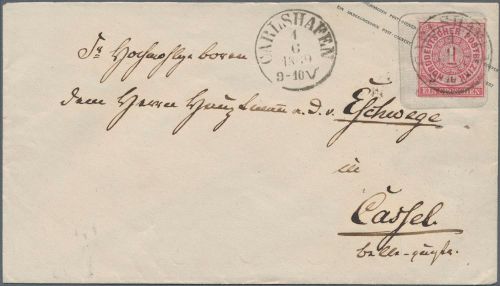 CARLSHAFEN
1
6
1869
9-10 V
NORDDEUTSCHER POSTBEZIRK
1
Sr Hochwohlgeboren
dem Herrn Hauptmann a. d. v. Eschwege
in
Cassel.